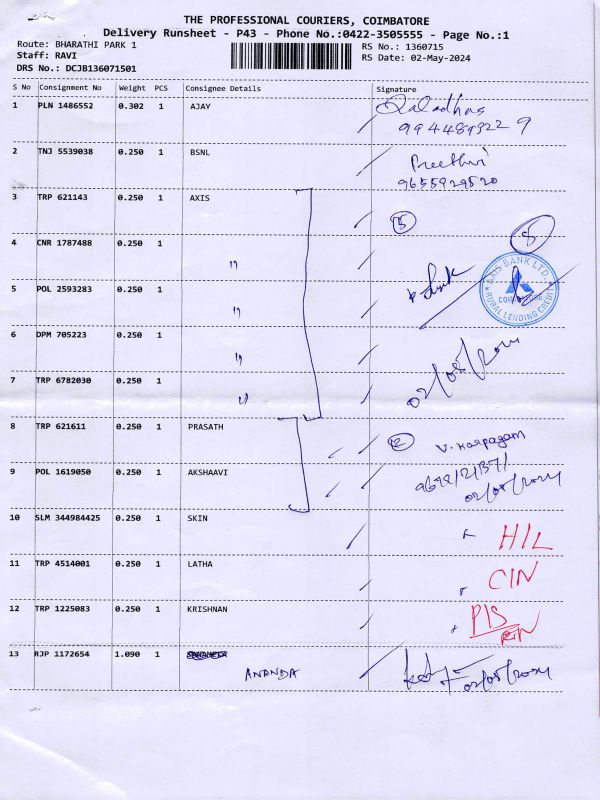 THE PROFESSIONAL COURIERS, COIMBATORE
Delivery Runsheet - P43 - Phone No.:0422-3505555 - Page No.:1
Route: BHARATHI PARK 1 RS No.: 1360715
Staff: RAVI RS Date: 02-May-2024
DRS No.: DCJB136071501
S No Consignment No Weight PCS Consignee Details Signature
1 PLN 1486552 0.302 1 AJAY
2 TNJ 5539038 0.250 1 BSNL Preethi
3 TRP 621143 0.250 1 AXIS 5
8
4 CNR 1787488 0.250 1 "
AXIS BANK LTD.
COIMBATORE
RURAL LENDING CREDIT
5 POL 2593283 0.250 1 "
6 DPM 705223 0.250 1 "
7 TRP 6782030 0.250 1 "
02/05/2024
8 TRP 621611 0.250 1 PRASATH 2 V. Karpagam
9 POL 1619050 0.250 1 AKSHAAVI
02/05/2024
10 SLM 344984425 0.250 1 SKIN HIL
11 TRP 4514001 0.250 1 LATHA CIN
12 TRP 1225083 0.250 1 KRISHNAN PIS
RTN
13 RJP 1172654 1.090 1
ANANDA 02/05/2024